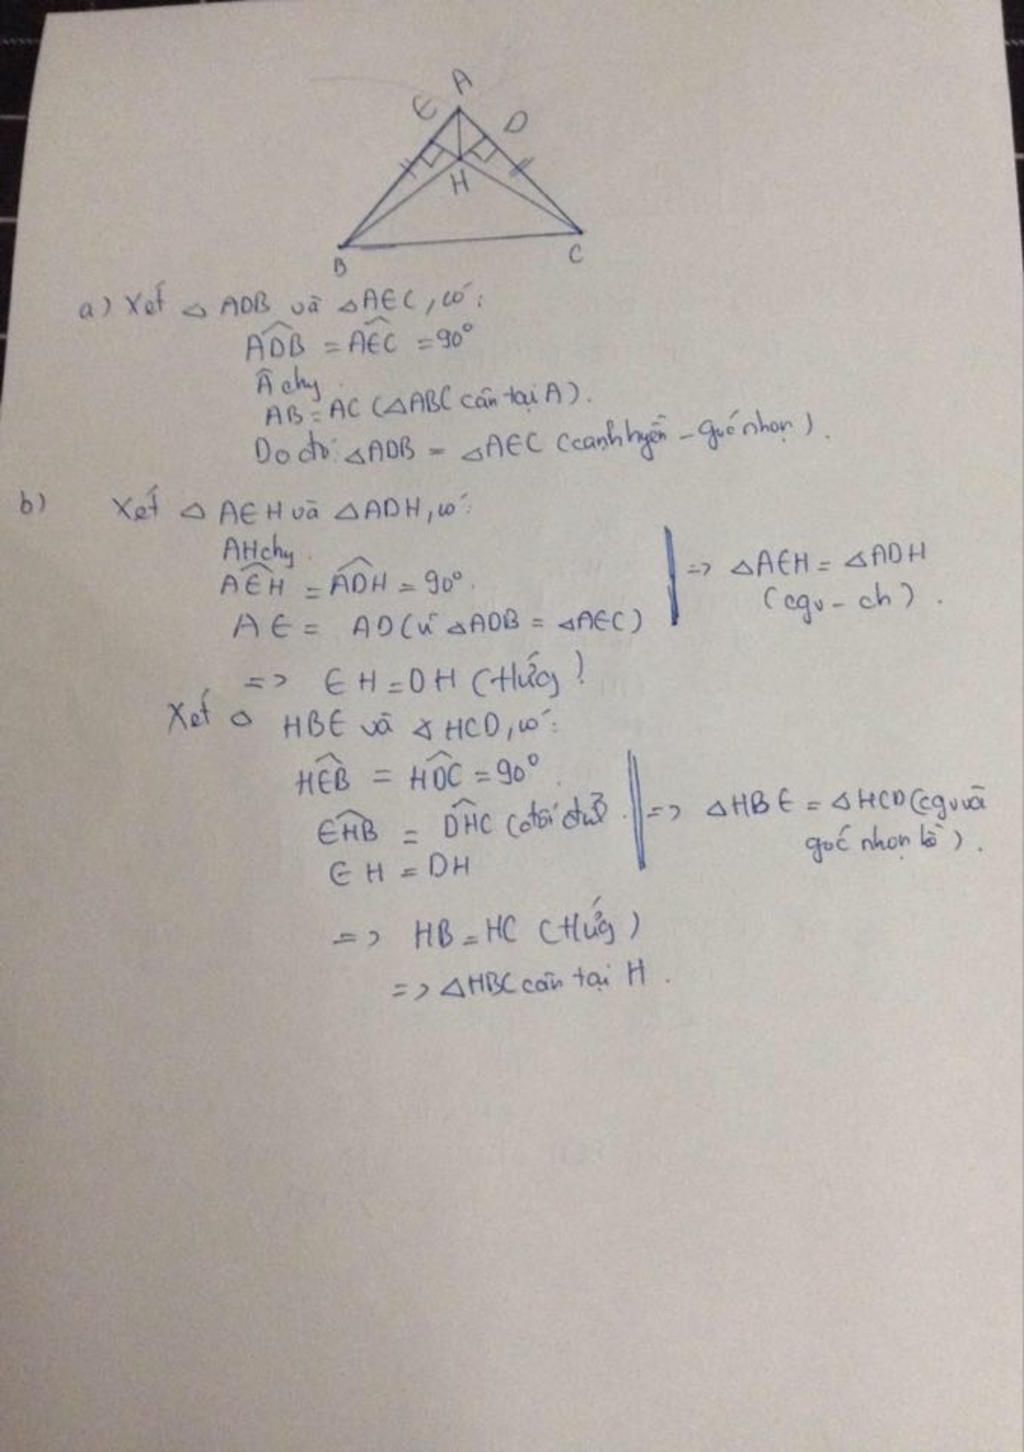 A
E
D
H
B
C
a) Xét △ ADB và △AEC, có:
ADB̂ = AEĈ = 90°
Â chg.
AB = AC (△ABC cân tại A).
Do đó: △ADB = △AEC (cạnh huyền - góc nhọn).
b) Xét △ AEH và △ADH, có:
AH chg.
AEĤ = ADĤ = 90°.
AE = AD (vì △ADB = △AEC)
=> △AEH = △ADH
(cgv - ch).
=> EH = DH (tứng)
Xét △ HBE và △ HCD, có:
HEB̂ = HDĈ = 90°.
EHB̂ = DHĈ (đối đỉnh).
EH = DH
=> △HBE = △HCD (cgv và
góc nhọn kề).
=> HB = HC (tứng)
=> △HBC cân tại H.